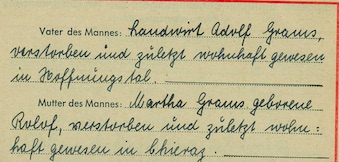 Vater des Mannes: Landwirt Adolf Grams,
verstorben und zuletzt wohnhaft gewesen
in Hoffnungstal.
Mutter des Mannes: Martha Grams geborene
Rolof, verstorben und zuletzt wohn=
haft gewesen in